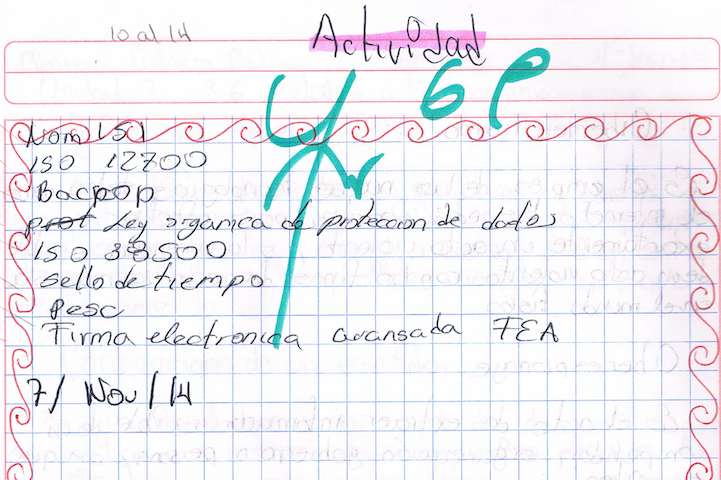 10 al 14
Actividad
6 P
Nom 151
ISO 12700
Bacpop
prot Ley organica de proteccion de dados
ISO 38500
sello de tiempo
Pesc
Firma electronica avansada FEA
7/ Nov/14